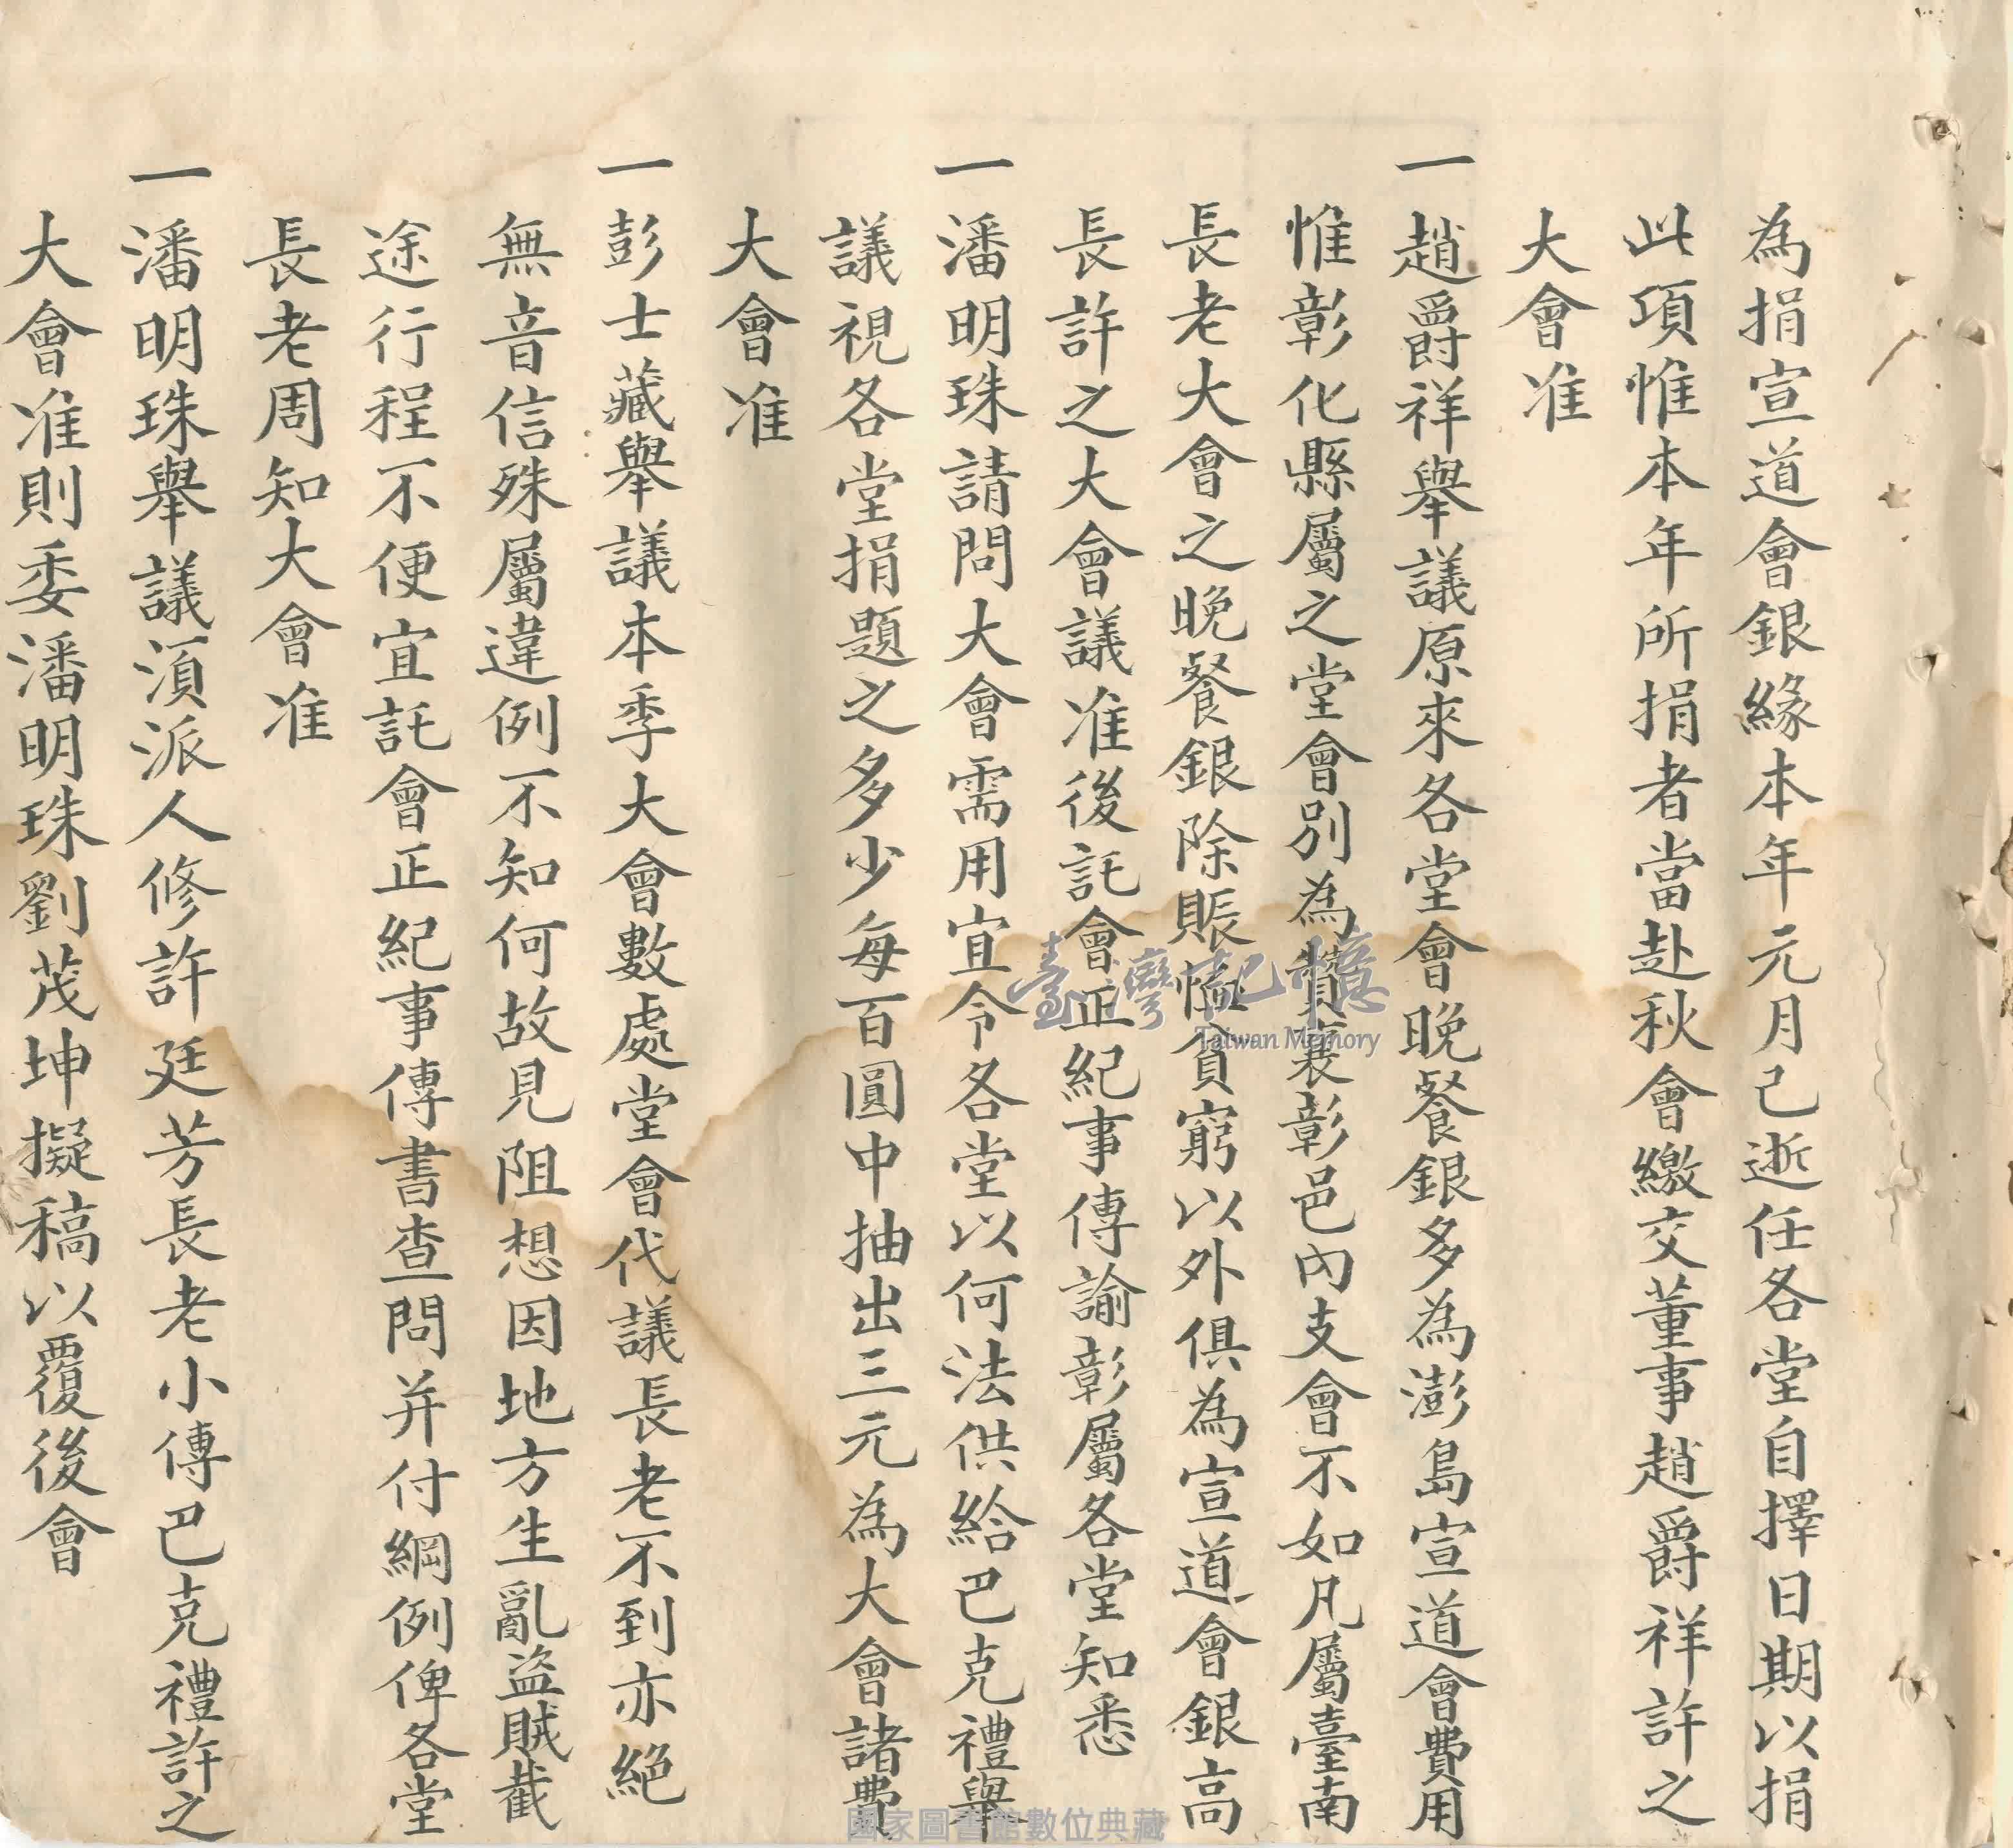 為捐宣道會銀緣本年元月己逝任各堂自擇日期以捐
此項惟本年所捐者當赴秋會繳交董事趙爵祥許之
大會准
一趙爵祥舉議原來各堂會晚餐銀多為澎島宣道會費用
惟彰化縣屬之堂會別為贊襄彰邑內支會不如凡屬臺南
長老大會之晚餐銀除賬恤貧窮以外俱為宣道會銀高
長許之大會議准後託會正紀事傳諭彰屬各堂知悉
一潘明珠請問大會需用宜令各堂以何法供給巴克禮舉
議視各堂捐題之多少每百圓中抽出三元為大會諸費
大會准
一彭士藏舉議本季大會數處堂會代議長老不到亦絕
無音信殊屬違例不知何故見阻想因地方生亂盜賊截
途行程不便宜託會正紀事傳書查問并付綱例俾各堂
長老周知大會准
一潘明珠舉議湏派人修許廷芳長老小傳巴克禮許之
大會准則委潘明珠劉茂坤擬稿以覆後會
臺灣記憶
Taiwan Memory
國家圖書館數位典藏